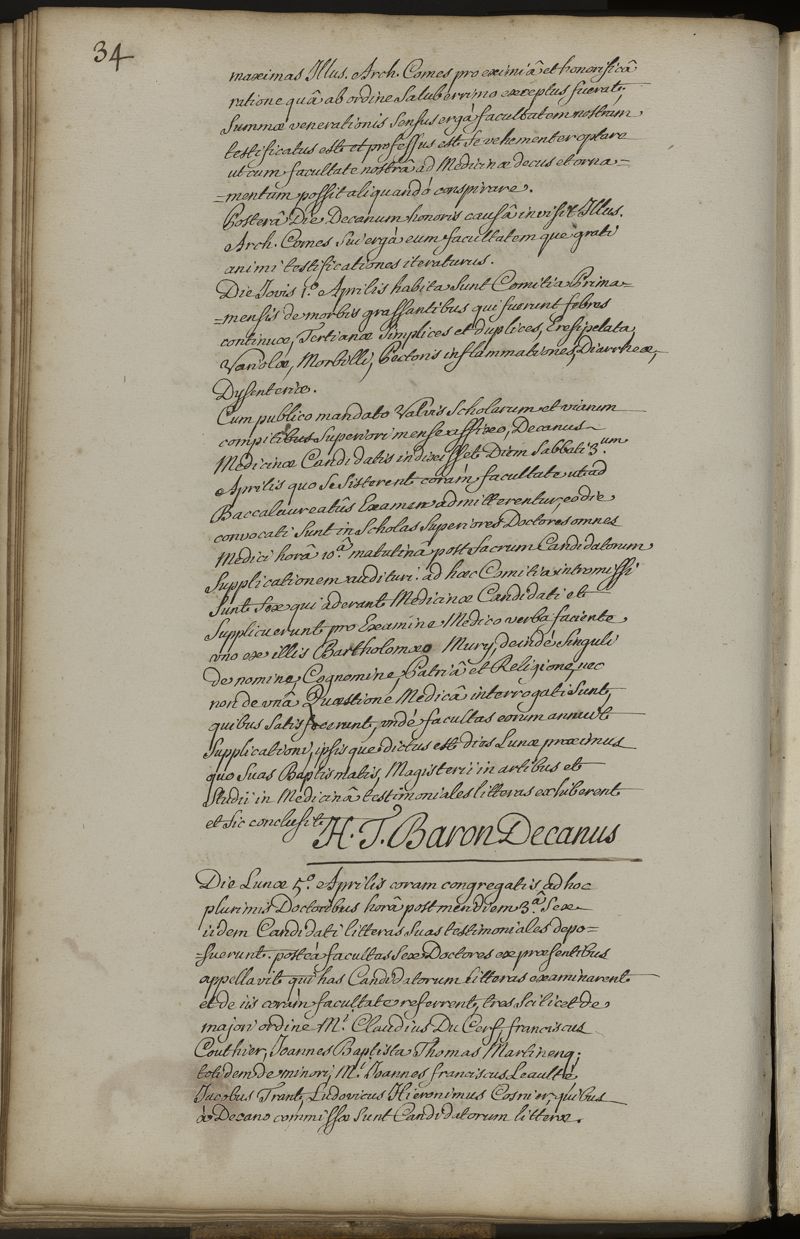 34
maximas Illus. Arch. Comes pro eximiâ et honorificâ
ratione quâ ab ordine Saluberrimo exceptus fuerat,
Summæ venerationis Sensus ergà facultatem nostram
testificatus est et professus est Se vehementer optare
ut cum facultate nostrâ ad Medicinæ decus et orna=
=mentum possit aliquandó conspirare.
Posterâ Die Decanum honoris causâ invisit Illus.
Arch. Comes Sui ergà eum facultatem que grati
animi testificationes iteraturus.
Die Jovis 1.º Aprilis habita Sunt Comitia Prima=
=mensis de morbis grassantibus qui fuerunt febres
continuæ, Tertianæ Simplices et duplices, Eresipelata,
Variolæ, Morbilli, Pectoris inflammationes, Diarrheæ,
Dysenteriæ.
Cum publico mandato Valvis Scholarum et viarum
compitibus Superiori mense affixo, Decanus
Medicinæ Candidatis indixisset Diem Sabbati 3.um
Aprilis quo Se Sisterent coràm facultate ut ad
Baccalaureatûs Examen admitterentur, eo die
convocati Sunt in Scholas Superiores Doctores omnes
Medici horâ 10.â matutinâ post Sacrum Candidatorum
Supplicationem audituri. ad hæc Comitia intromissi
Sunt Sex qui aderant Medicinæ Candidati et
Supplicuerunt pro Examine Medico verba faciente
uno ex illis Bartholomæo Mury, deindé Singuli
de nomine, Cognomine, Patriâ et Religione, nec
non de unâ Quæstione Medicâ interrogati Sunt,
quibus Satisfecerunt, undé facultas eorum annuit
Supplicationi, ipsis que dictus est dies Lunæ proximus
quo Suas Baptismatis, Magisterii in artibus et
Studii in Medicinâ testimoniales litteras exhiberent
et Sic conclusit
H. T. Baron Decanus
Die Lunæ 5.º Aprilis coram congregatis ad hoc
plurimis Doctoribus horâ post meridiem 3.â Sex
iidem Candidati litteras Suas testimoniales depo=
=suerunt. posteà facultas Sex Doctores ex præsentibus
appellavit qui has Candidatorum Litteras examinarent
et de iis coràm facultate referrent, tres Scilicet de
majori ordine M.r Claudius Du Cerf, franciscus
Couthier, Joannes Baptista Thomas Martinenq;
totidem de minori, M.r Joannes franciscus Leaulté,
Jacobus Trant, Ludovicus Hieronimus Cosnier, quibus
à Decano commissæ Sunt Candidatorum litteræ.